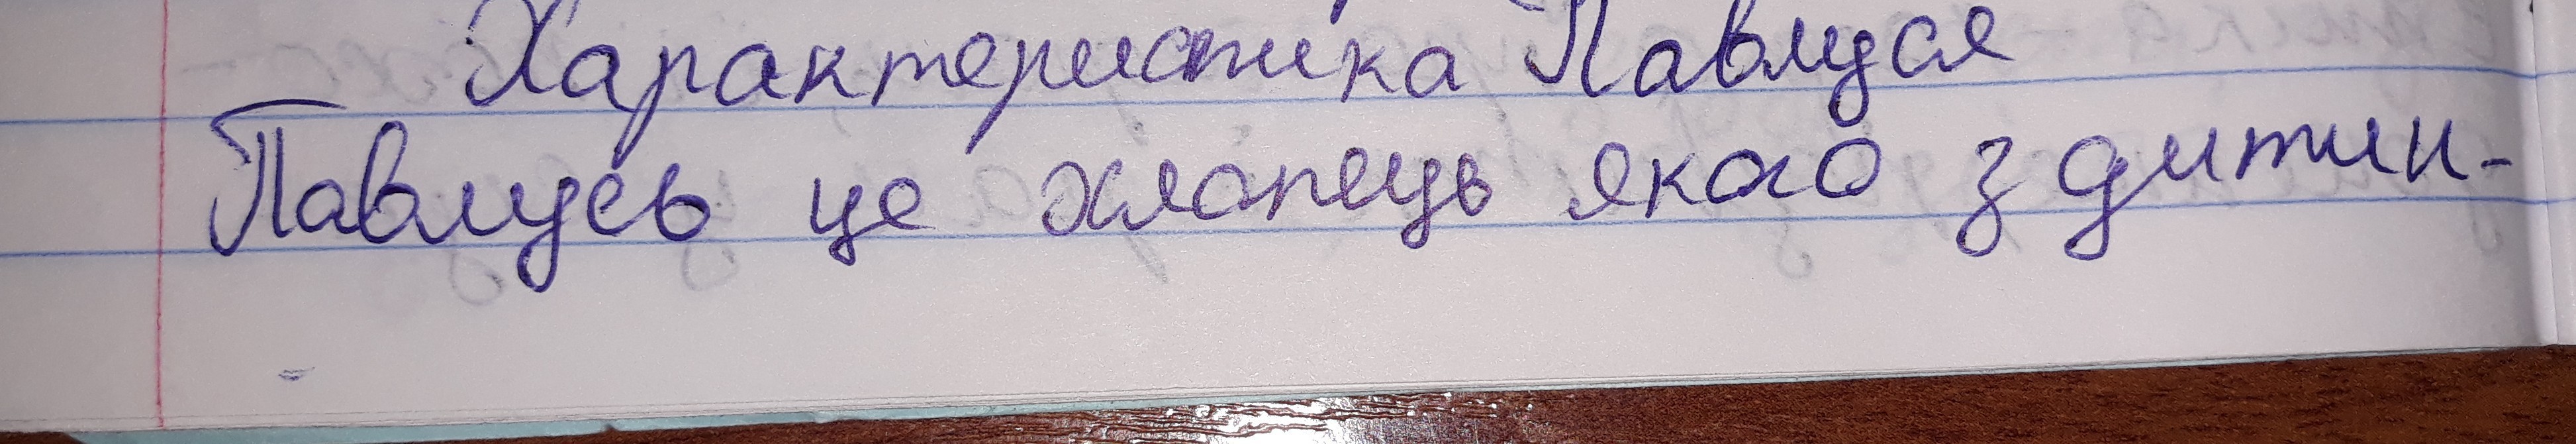 Характеристика Павлуся
Павлусь це хлопець якого з дитин-